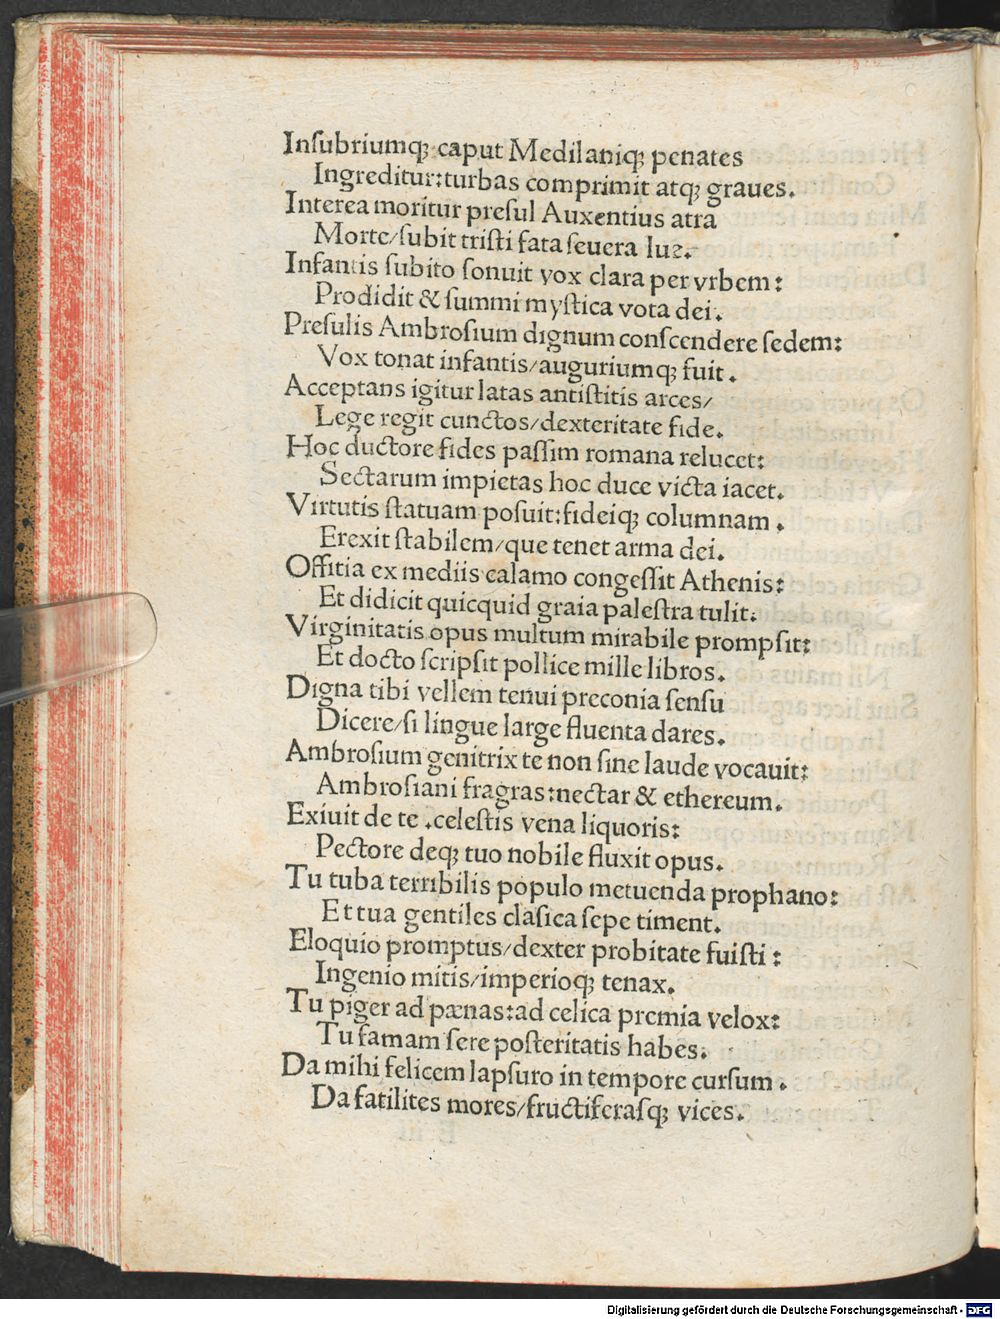 Inſubriumqꝫ caput Medilaniqꝫ penates
Ingreditur:turbas comprimit atqꝫ graues.
Interea moritur preſul Auxentius atra
Morte/ſubit triſti fata ſeuera lue.
Infantis ſubito ſonuit vox clara per vrbem:
Prodidit & ſummi myſtica vota dei.
Preſulis Ambroſium dignum conſcendere ſedem:
Vox tonat infantis/auguriumqꝫ fuit.
Acceptans igitur latas antiſtitis arces/
Lege regit cunctos/dexteritate fide.
Hoc ductore fides paſſim romana relucet:
Sectarum impietas hoc duce victa iacet.
Virtutis ſtatuam poſuit:fideiqꝫ columnam.
Erexit ſtabilem/que tenet arma dei.
Offitia ex mediis calamo congeſſit Athenis:
Et didicit quicquid graia paleſtra tulit:
Virginitatis opus multum mirabile prompſit:
Et docto ſcripſit pollice mille libros.
Digna tibi vellem tenui preconia ſenſu
Dicere/ſi lingue large fluenta dares.
Ambroſium genitrix te non ſine laude vocauit:
Ambroſiani fragras:nectar & ethereum.
Exiuit de te .celeſtis vena liquoris:
Pectore deqꝫ tuo nobile fluxit opus.
Tu tuba terribilis populo metuenda prophano:
Et tua gentiles claſica ſepe timent.
Eloquio promptus/dexter probitate fuiſti:
Ingenio mitis/imperioqꝫ tenax.
Tu piger ad pœnas:ad celica premia velox:
Tu famam fere poſteritatis habes.
Da mihi felicem lapſuro in tempore curſum.
Da fatilites mores/fructiferaſqꝫ vices.
Digitalisierung gefördert durch die Deutsche Forschungsgemeinschaft - DFG